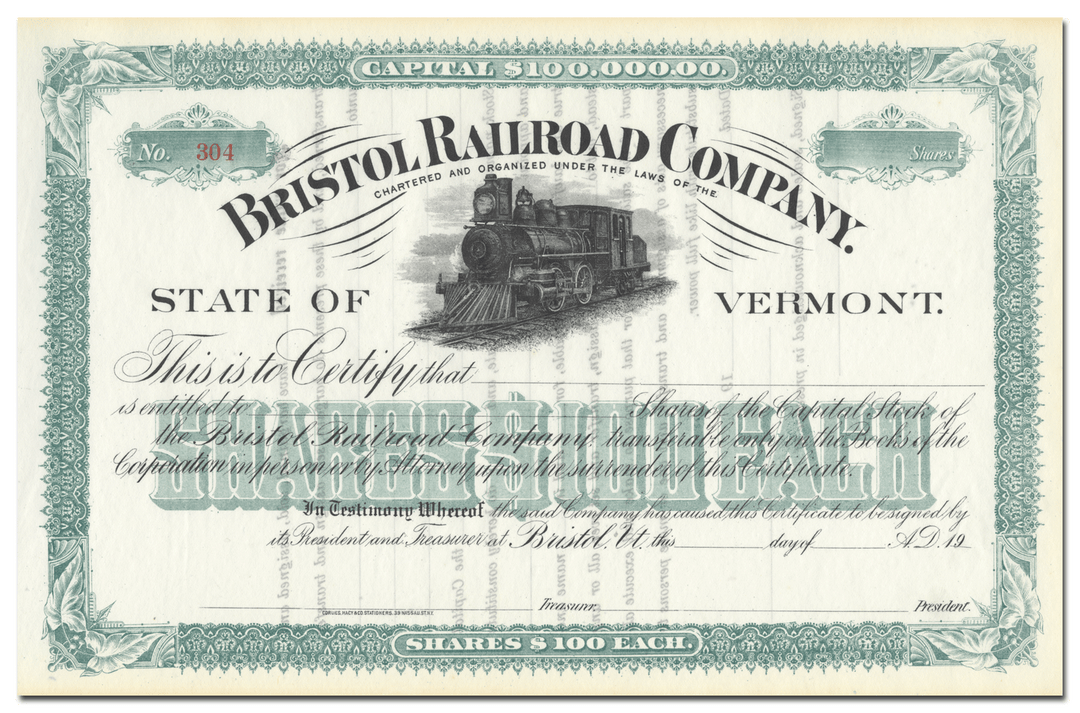 CAPITAL $100.000.00.
No. 304
Shares
BRISTOL RAILROAD COMPANY.
CHARTERED AND ORGANIZED UNDER THE LAWS OF THE
STATE OF VERMONT.
This is to Certify that
is entitled to Shares of the Capital Stock of
the Bristol Railroad Company transferable only on the Books of the
Corporation in person or by Attorney upon the surrender of this Certificate.
SHARES $100 EACH
In Testimony Whereof the said Company has caused this Certificate to be signed by
its President and Treasurer at Bristol, Vt. this day of A.D. 19
Treasurer. President.
CORLIES, MACY & CO STATIONERS. 39 NASSAU ST. N.Y.
SHARES $100 EACH.